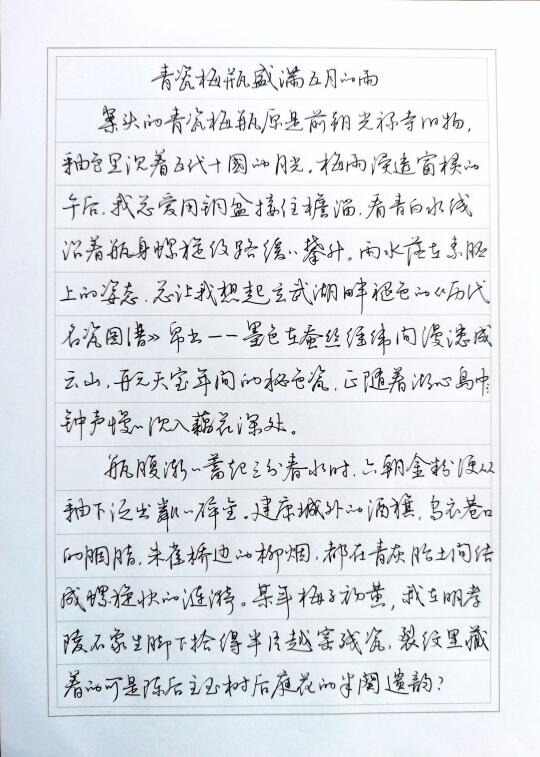 青瓷梅瓶盛满五月的雨
案头的青瓷梅瓶原是前朝光禄寺旧物，
釉色里沉着五代十国的月光。梅雨浸透窗棂的
午后，我总爱用铜盆接住檐溜，看青白水线
沿着瓶身螺旋纹路缓缓攀升。雨水落在素胚
上的姿态，总让我想起玄武湖畔褪色的《历代
名瓷图谱》帛书——墨色在蚕丝经纬间漫漶成
云山，开元天宝年间的秘色瓷，正随着湖心岛的
钟声慢慢沉入藕花深处。
瓶腹渐渐蓄起三分春水时，六朝金粉便从
釉下泛出粼粼碎金。建康城外的酒旗，乌衣巷口
的胭脂，朱雀桥边的柳烟，都在青灰胎土间结
成螺旋状的涟漪。某年梅子初黄，我在明孝
陵石象生脚下拾得半片越窑残瓷，裂纹里藏
着的可是陈后主玉树后庭花的半阕遗韵？